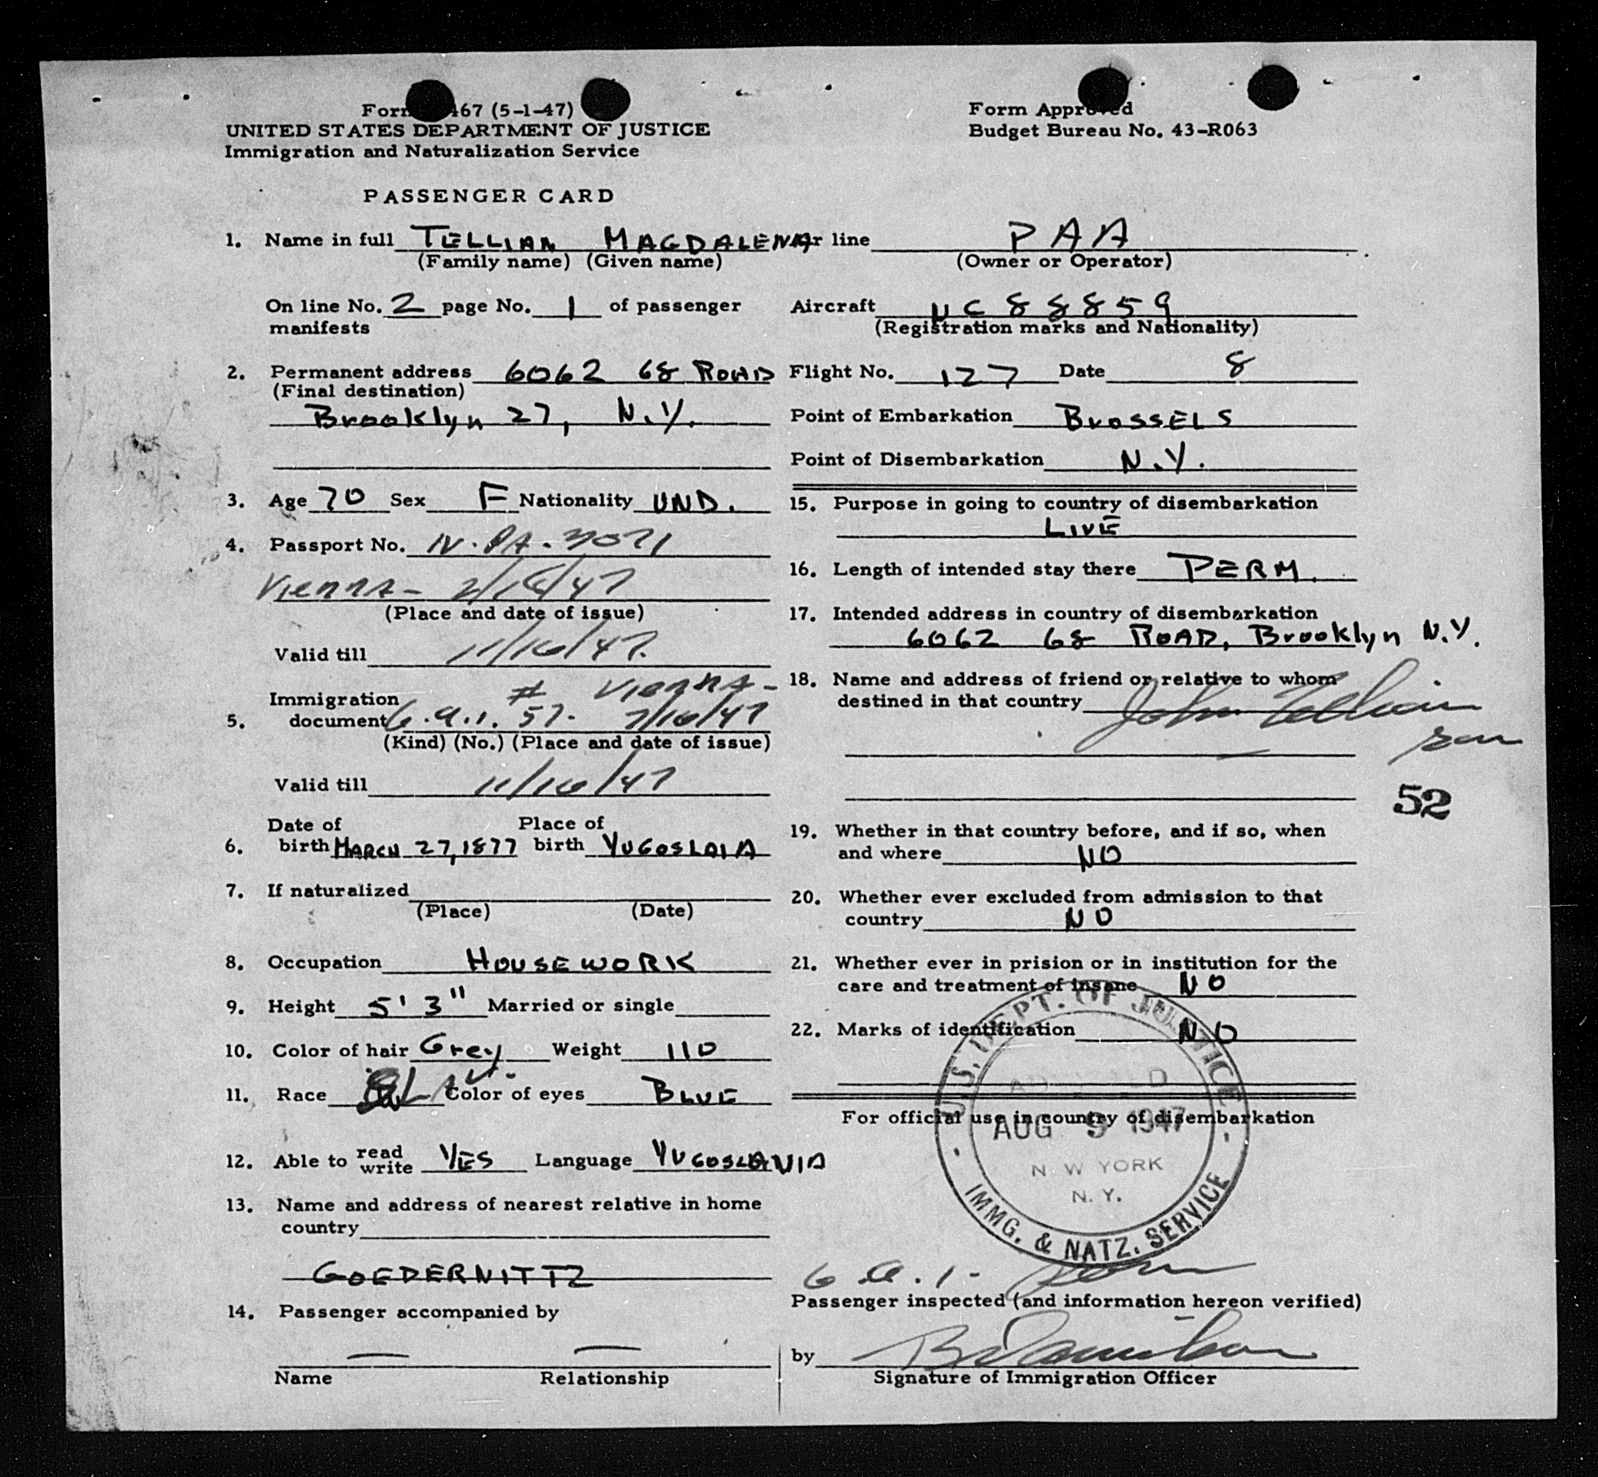 Form 467 (5-1-47)
UNITED STATES DEPARTMENT OF JUSTICE
Immigration and Naturalization Service
Form Approved
Budget Bureau No. 43-R063
PASSENGER CARD
1. Name in full TELLIAN MAGDALENA
(Family name) (Given name)
On line No. 2 page No. 1 of passenger
manifests
2. Permanent address 6062 68 ROAD
(Final destination)
Brooklyn 27, N.Y.
3. Age 70 Sex F Nationality UND.
4. Passport No. IV.PA.3071
Vienna - 2/18/47
(Place and date of issue)
Valid till 11/16/47.
Immigration # VIENNA -
5. document 6.a.1. 57. 7/16/47
(Kind) (No.) (Place and date of issue)
Valid till 11/16/47
Date of Place of
6. birth MARCH 27, 1877 birth YUGOSLAIA
7. If naturalized
(Place) (Date)
8. Occupation HOUSEWORK
9. Height 5' 3" Married or single
10. Color of hair Grey Weight 110
11. Race Color of eyes BLUE
12. Able to read write YES Language YUGOSLAVIA
13. Name and address of nearest relative in home
country
GOEDERNITTZ
14. Passenger accompanied by
— —
Name Relationship
Air line PAA
(Owner or Operator)
Aircraft NC 88859
(Registration marks and Nationality)
Flight No. 127 Date 8
Point of Embarkation BRUSSELS
Point of Disembarkation N.Y.
15. Purpose in going to country of disembarkation
LIVE
16. Length of intended stay there PERM.
17. Intended address in country of disembarkation
6062 68 ROAD, Brooklyn N.Y.
18. Name and address of friend or relative to whom
destined in that country John Tellian
son
52
19. Whether in that country before, and if so, when
and where NO
20. Whether ever excluded from admission to that
country NO
21. Whether ever in prision or in institution for the
care and treatment of insane NO
22. Marks of identification NO
For official use in country of disembarkation
U.S. DEPT. OF JUSTICE
ADMITTED
AUG 9 1947
NEW YORK
N.Y.
IMMG. & NATZ. SERVICE
6.a.1-
Passenger inspected (and information hereon verified)
by
Signature of Immigration Officer